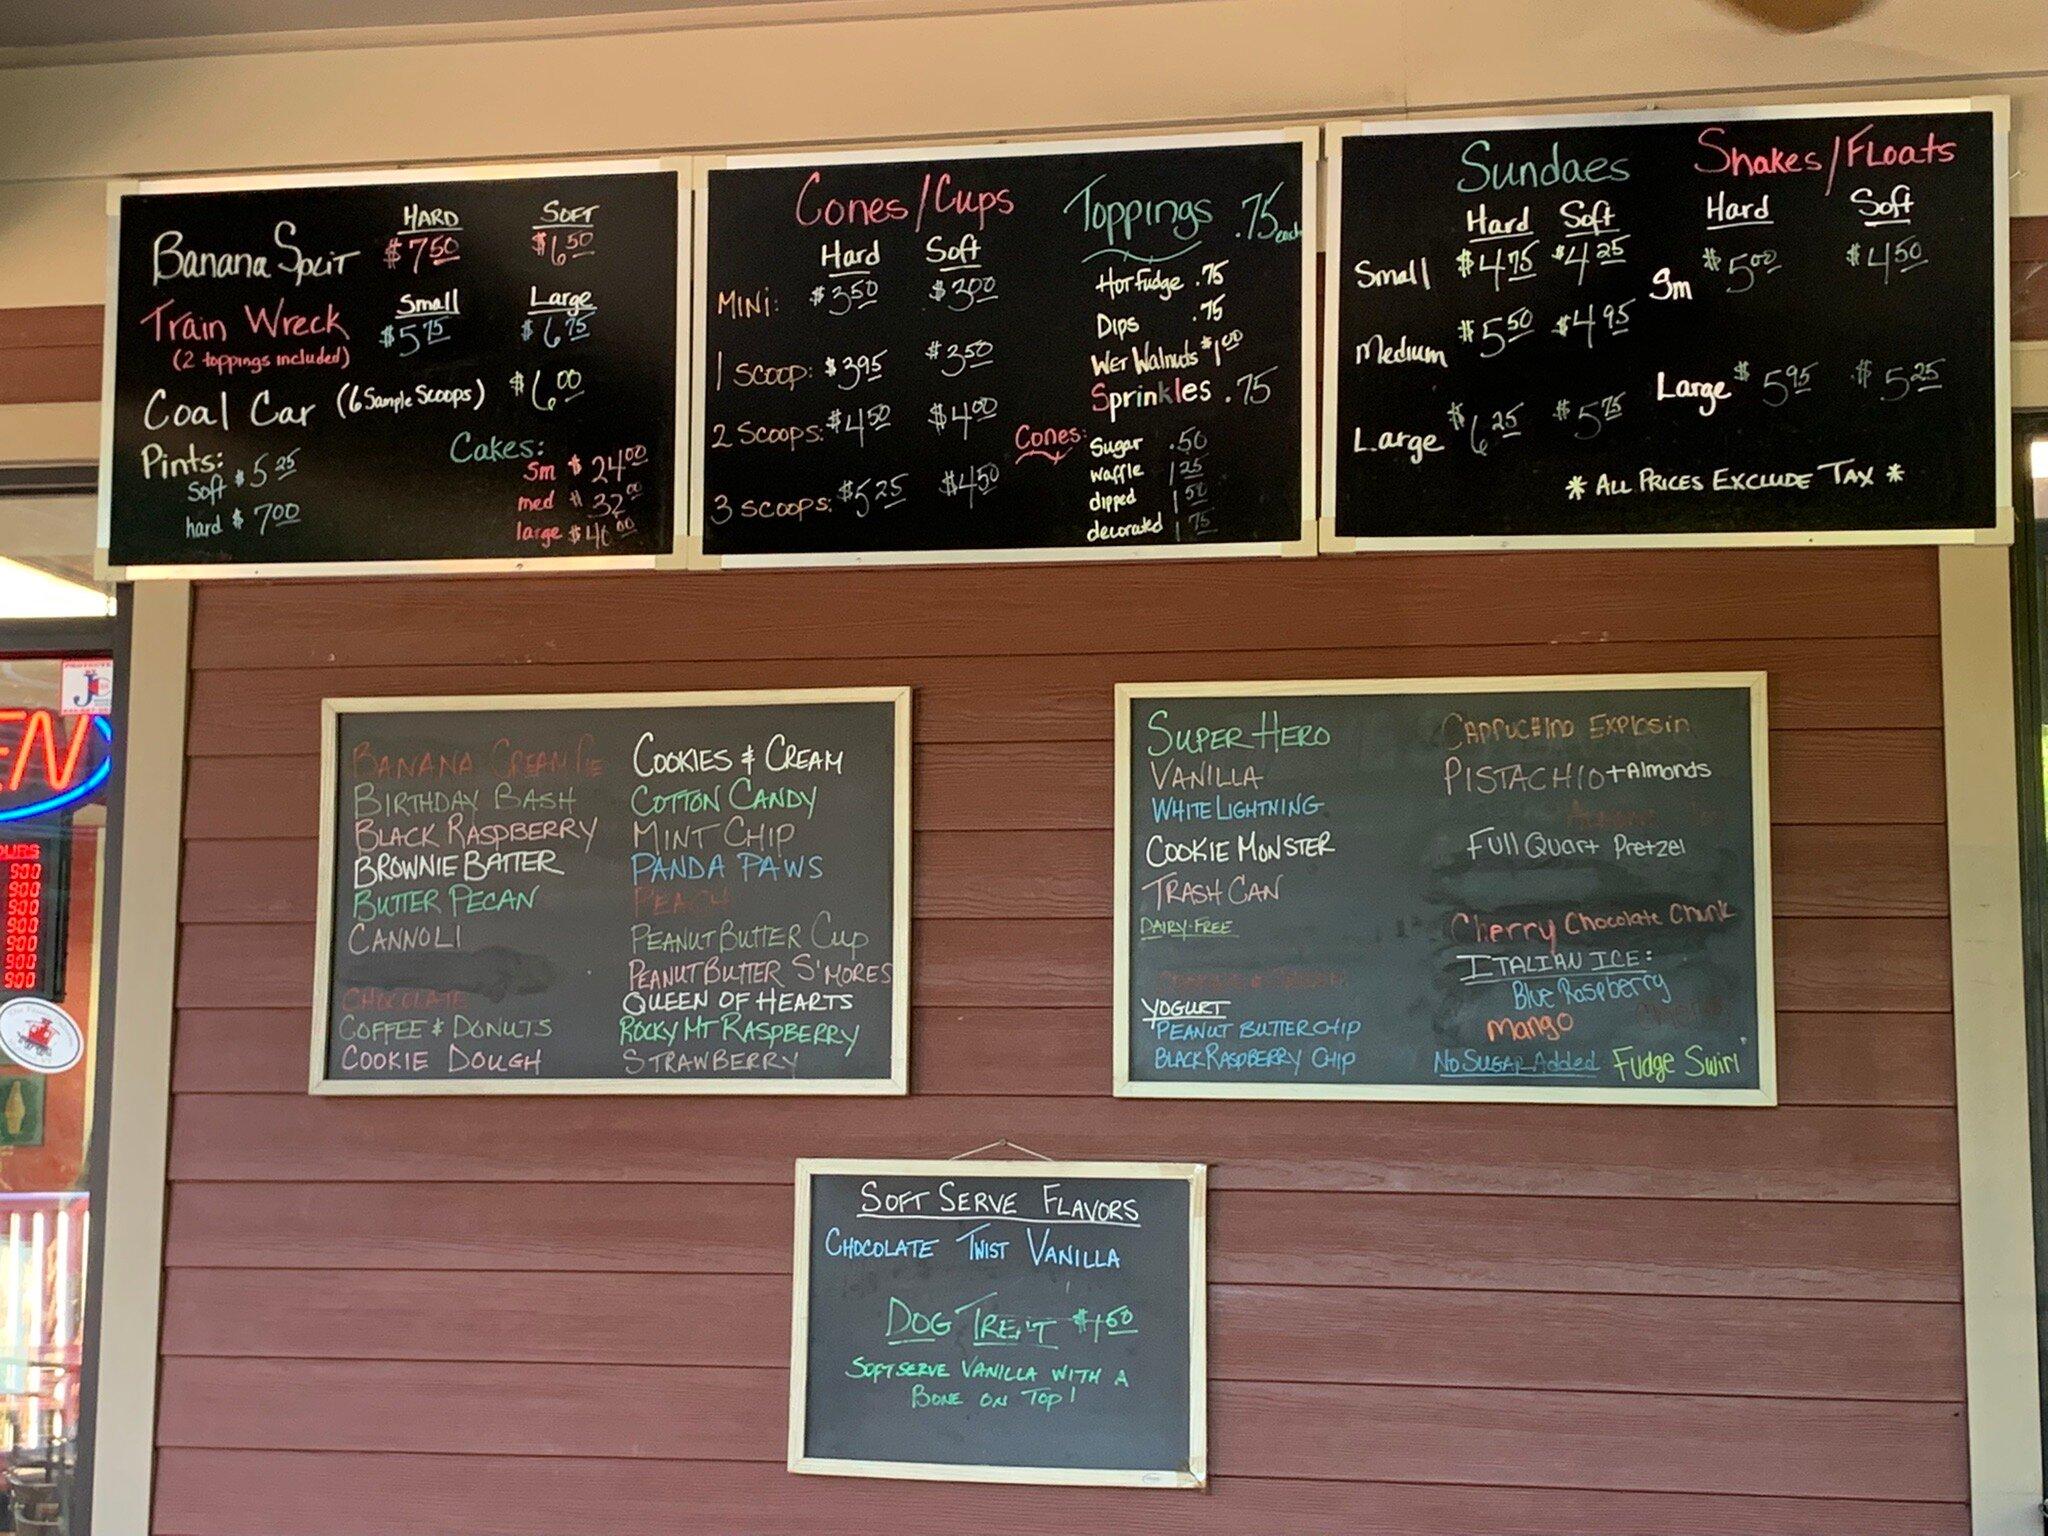 HARD SOFT
Banana Split $7.50 $6.50
Small Large
Train Wreck $5.75 $6.75
(2 toppings included)
Coal Car (6 Sample Scoops) $6.00
Pints:
Soft $5.25
hard $7.00
Cakes:
Sm $24.00
med $32.00
large $40.00
Cones/Cups
Hard Soft
MINI: $3.50 $3.00
1 SCOOP: $3.95 $3.50
2 SCOOPS: $4.50 $4.00
3 SCOOPS: $5.25 $4.50
Toppings .75 each
Hot Fudge .75
Dips .75
Wet Walnuts $1.00
Sprinkles .75
Cones: Sugar .50
waffle 1.25
dipped 1.50
decorated 1.75
Sundaes
Hard Soft
Small $4.75 $4.25
Medium $5.50 $4.95
Large $6.25 $5.75
Shakes/Floats
Hard Soft
Sm $5.00 $4.50
Large $5.95 $5.25
* ALL PRICES EXCLUDE TAX *
BANANA CREAM PIE
BIRTHDAY BASH
BLACK RASPBERRY
BROWNIE BATTER
BUTTER PECAN
CANNOLI
CHOCOLATE
COFFEE & DONUTS
COOKIE DOUGH
COOKIES & CREAM
COTTON CANDY
MINT CHIP
PANDA PAWS
PEACH
PEANUT BUTTER CUP
PEANUT BUTTER S'MORES
QUEEN OF HEARTS
ROCKY MT RASPBERRY
STRAWBERRY
SUPER HERO
VANILLA
WHITE LIGHTNING
COOKIE MONSTER
TRASH CAN
DAIRY-FREE
YOGURT
PEANUT BUTTER CHIP
BLACK RASPBERRY CHIP
CAPPUCHINO EXPLOSIN
PISTACHIO + Almonds
Full Quart Pretzel
Cherry Chocolate Chunk
ITALIAN ICE:
Blue Raspberry
Mango
NO SUGAR Added Fudge Swirl
SOFT SERVE FLAVORS
CHOCOLATE TWIST VANILLA
DOG TREAT $1.50
SOFT SERVE VANILLA WITH A
BONE ON TOP!
EN
URS
900
900
900
900
900
900
900